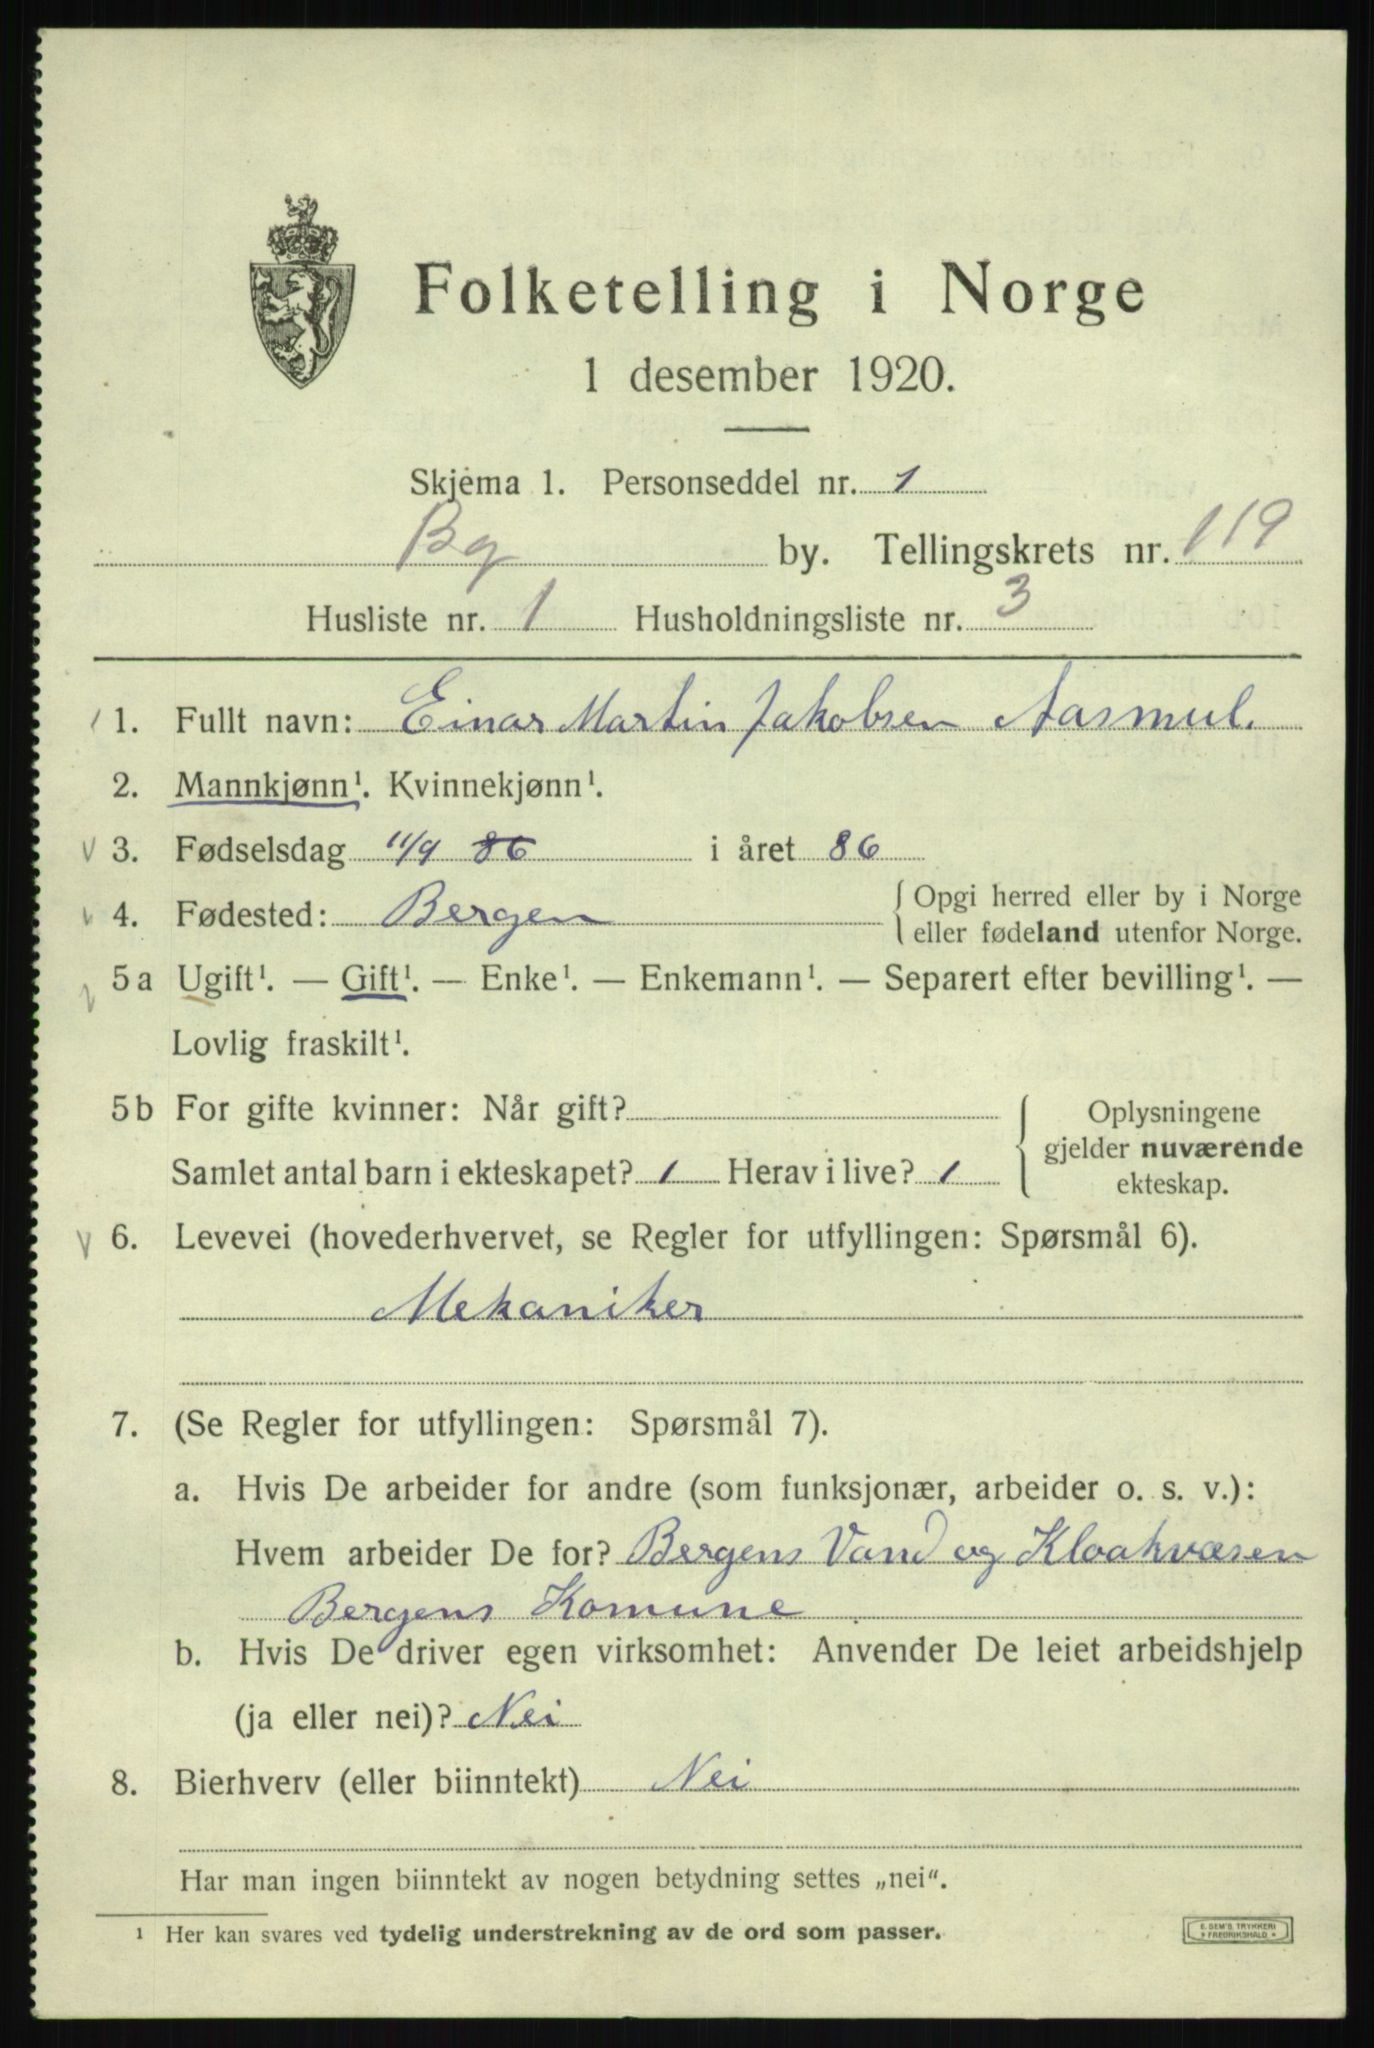 Folketelling i Norge
1 desember 1920.
Skjema 1. Personseddel nr. 1
Bg by. Tellingskrets nr. 119
Husliste nr. 1 Husholdningsliste nr. 3
1. Fullt navn: Einar Martin Jakobsen Aasmul.
2. Mannkjønn¹. Kvinnekjønn¹.
3. Fødselsdag 11/9 86 i året 86
4. Fødested: Bergen { Opgi herred eller by i Norge
eller fødeland utenfor Norge.
5a Ugift¹. — Gift¹. — Enke¹. — Enkemann¹. — Separert efter bevilling¹. —
Lovlig fraskilt¹.
5b For gifte kvinner: Når gift?
Samlet antal barn i ekteskapet? 1 Herav i live? 1
{ Oplysningene
gjelder nuværende
ekteskap.
6. Levevei (hovederhvervet, se Regler for utfyllingen: Spørsmål 6).
Mekaniker
7. (Se Regler for utfyllingen: Spørsmål 7).
a. Hvis De arbeider for andre (som funksjonær, arbeider o. s. v.):
Hvem arbeider De for? Bergens Vand og Kloakvæsen
Bergens Komune
b. Hvis De driver egen virksomhet: Anvender De leiet arbeidshjelp
(ja eller nei)? Nei
8. Bierhverv (eller biinntekt) Nei
Har man ingen biinntekt av nogen betydning settes „nei“.
¹ Her kan svares ved tydelig understrekning av de ord som passer.
E. SEM'S TRYKKERI
* FREDRIKSHALD *